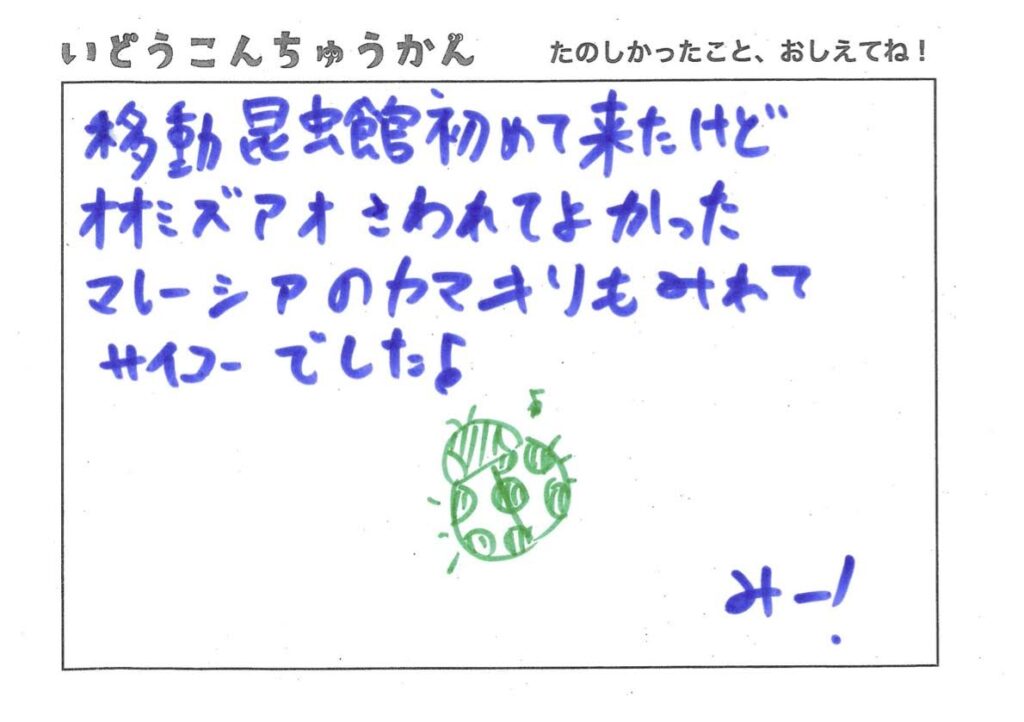 いどうこんちゅうかん
たのしかったこと、おしえてね！
移動昆虫館初めて来たけど
オオミズアオさわれてよかった
マレーシアのカマキリもみれて
サイコーでした♪
みー!